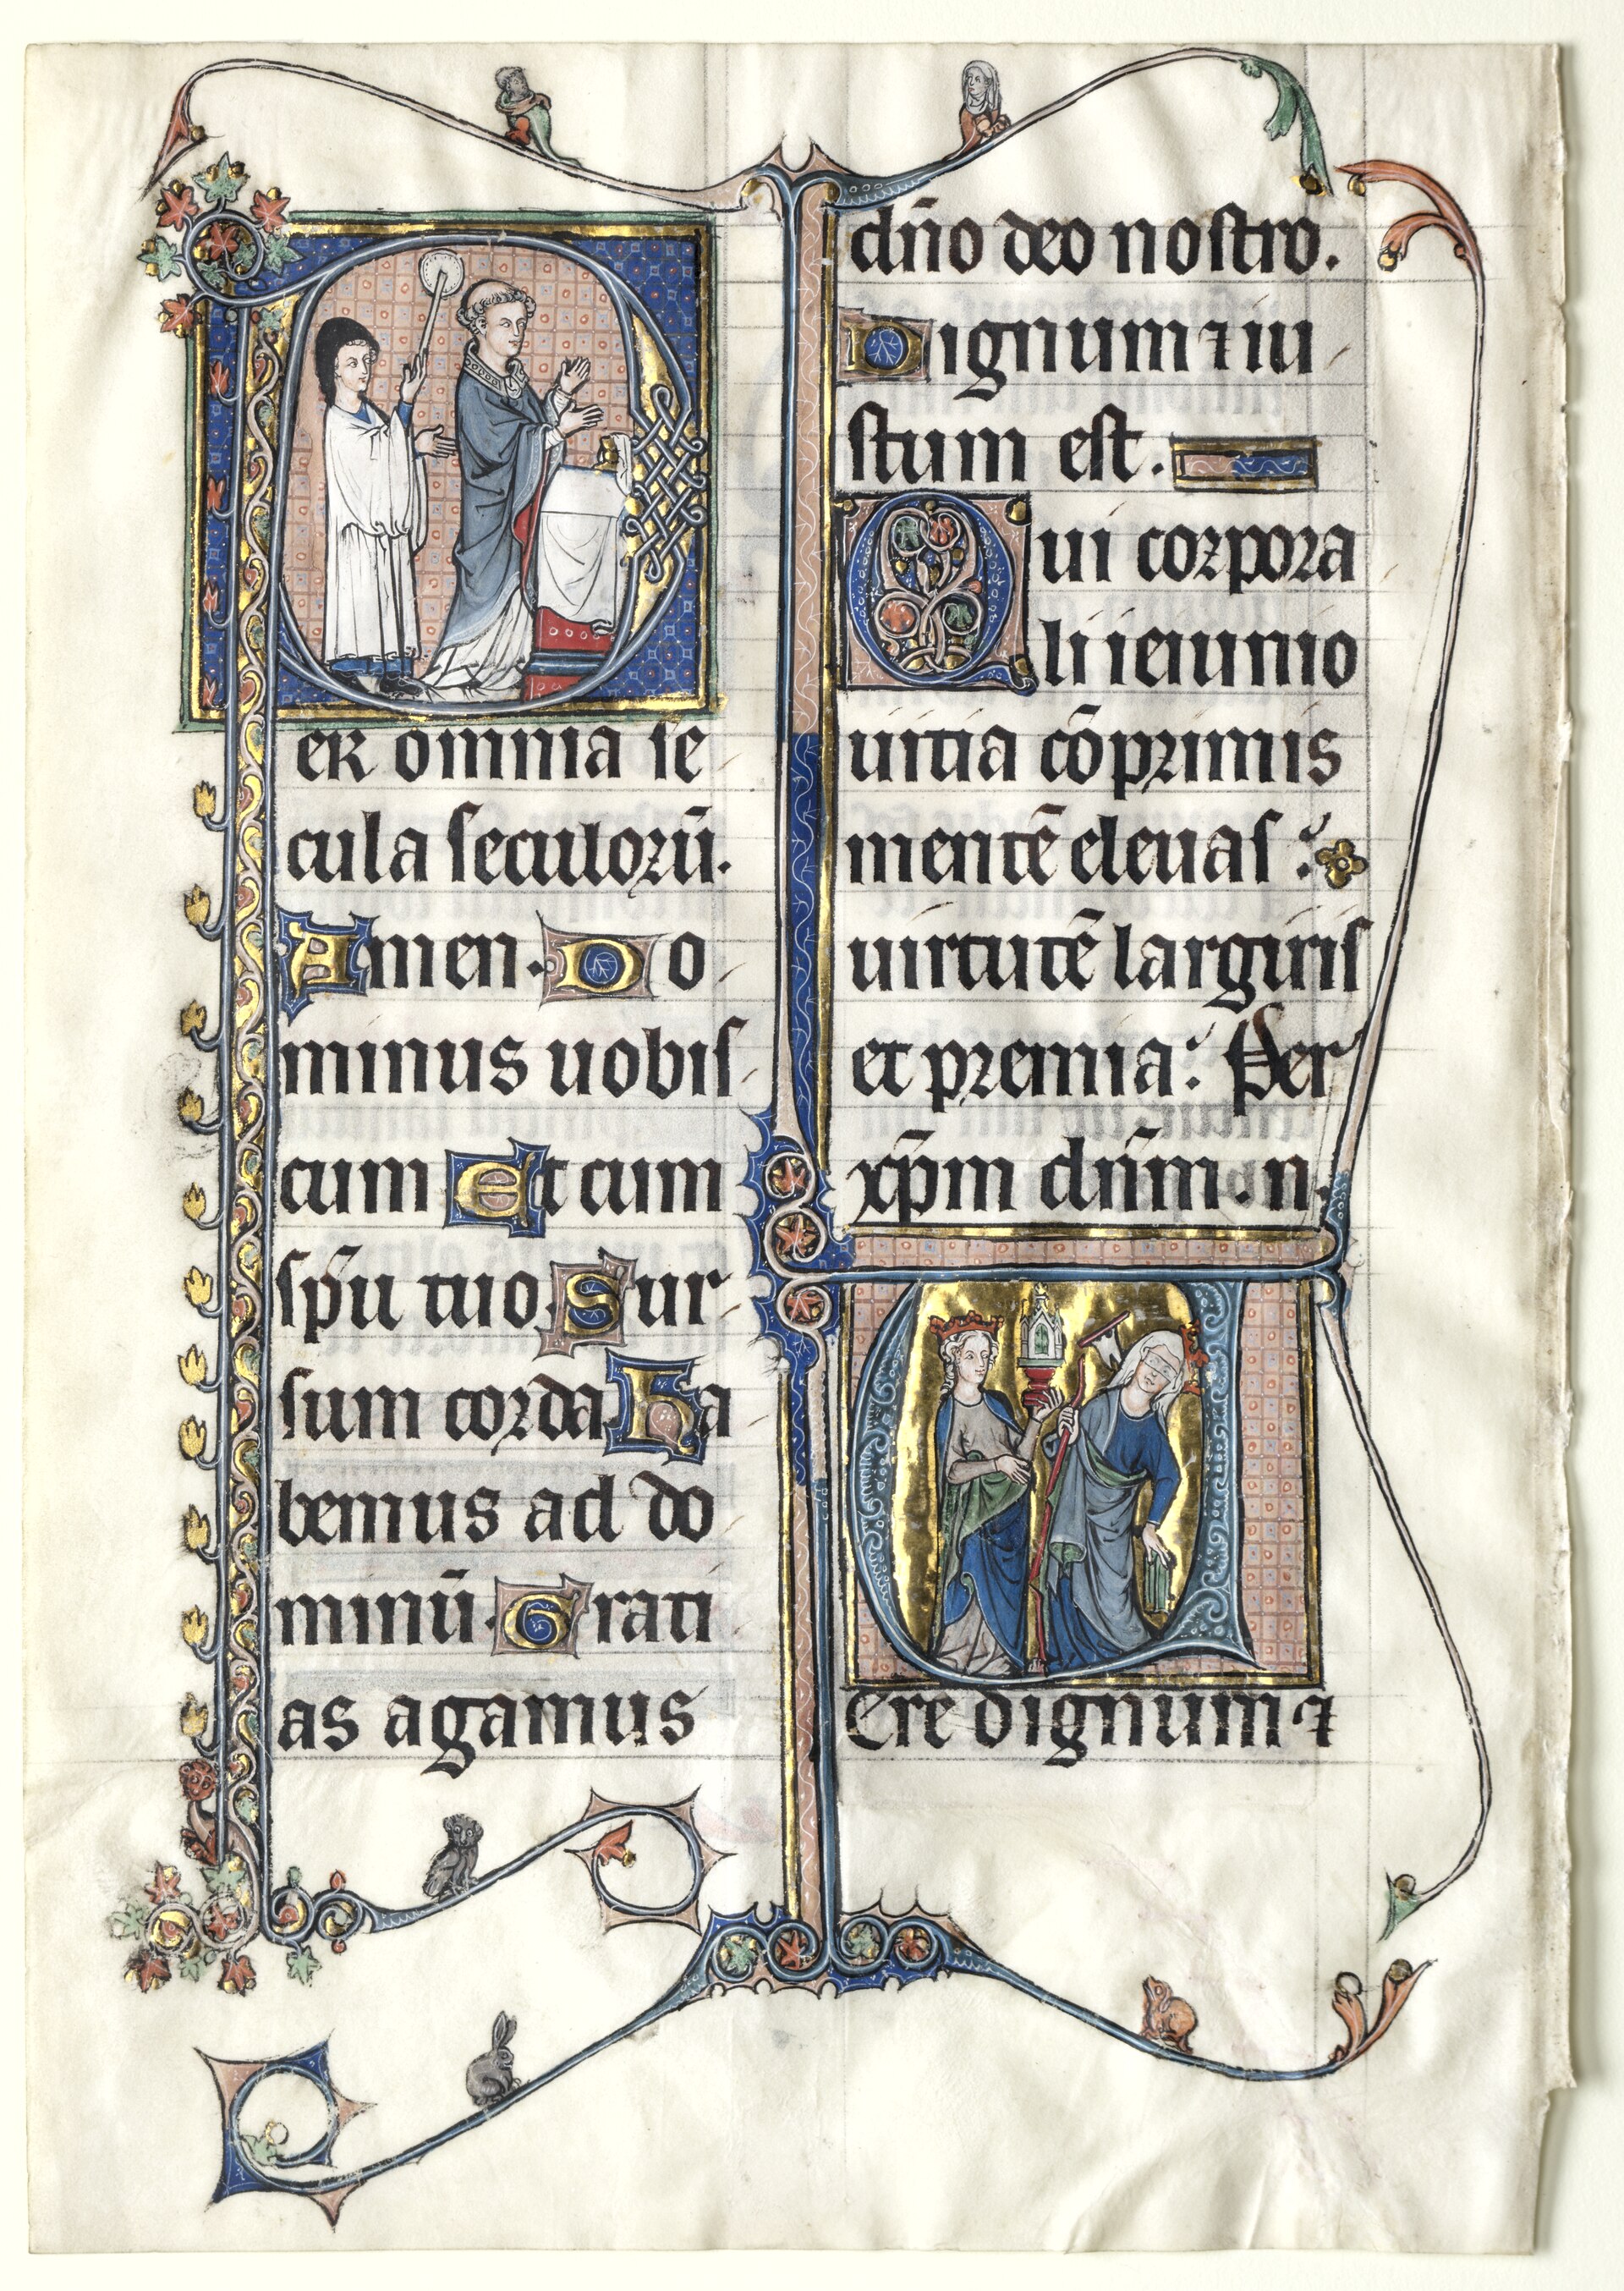 Per omnia se
cula seculorū.
Amen. Do
minus uobis
cum Et cum
sp̄u tuo. Sur
sum corda. Ha
bemus ad do
minū. Grati
as agamus
dn̄o deo nostro.
Dignum ⁊ iu
stum est.
Qui corpora
li ieiunio
uitia cōprimis
mentē eleuas :
uirtutē largiris
et premia: Per
xp̄m dn̄m. n.
Vere dignum ⁊